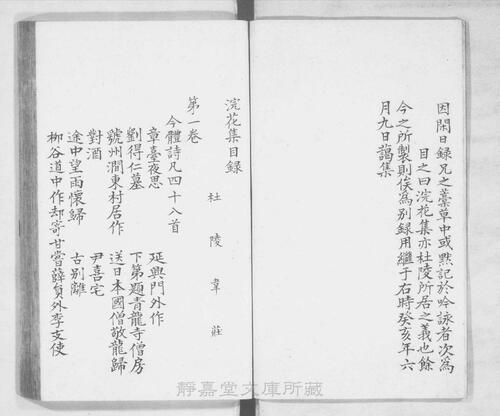 因閑日錄兄之藁草中或黙記於吟詠者次為
目之曰浣花集亦杜陵所居之義也餘
今之所製則俟為别錄用繼于右時癸亥年六
月九日藹集
浣花集目錄
杜陵韋莊
第一卷
今體詩凡四十八首
章臺夜思 延興門外作
劉得仁墓 下第題青龍寺僧房
虢州澗東村居作 送日本國僧敬龍歸
對酒 尹喜宅
途中望雨懷歸 古别離
柳谷道中作却寄 甘嘗薛員外李支使
靜嘉堂文庫所藏